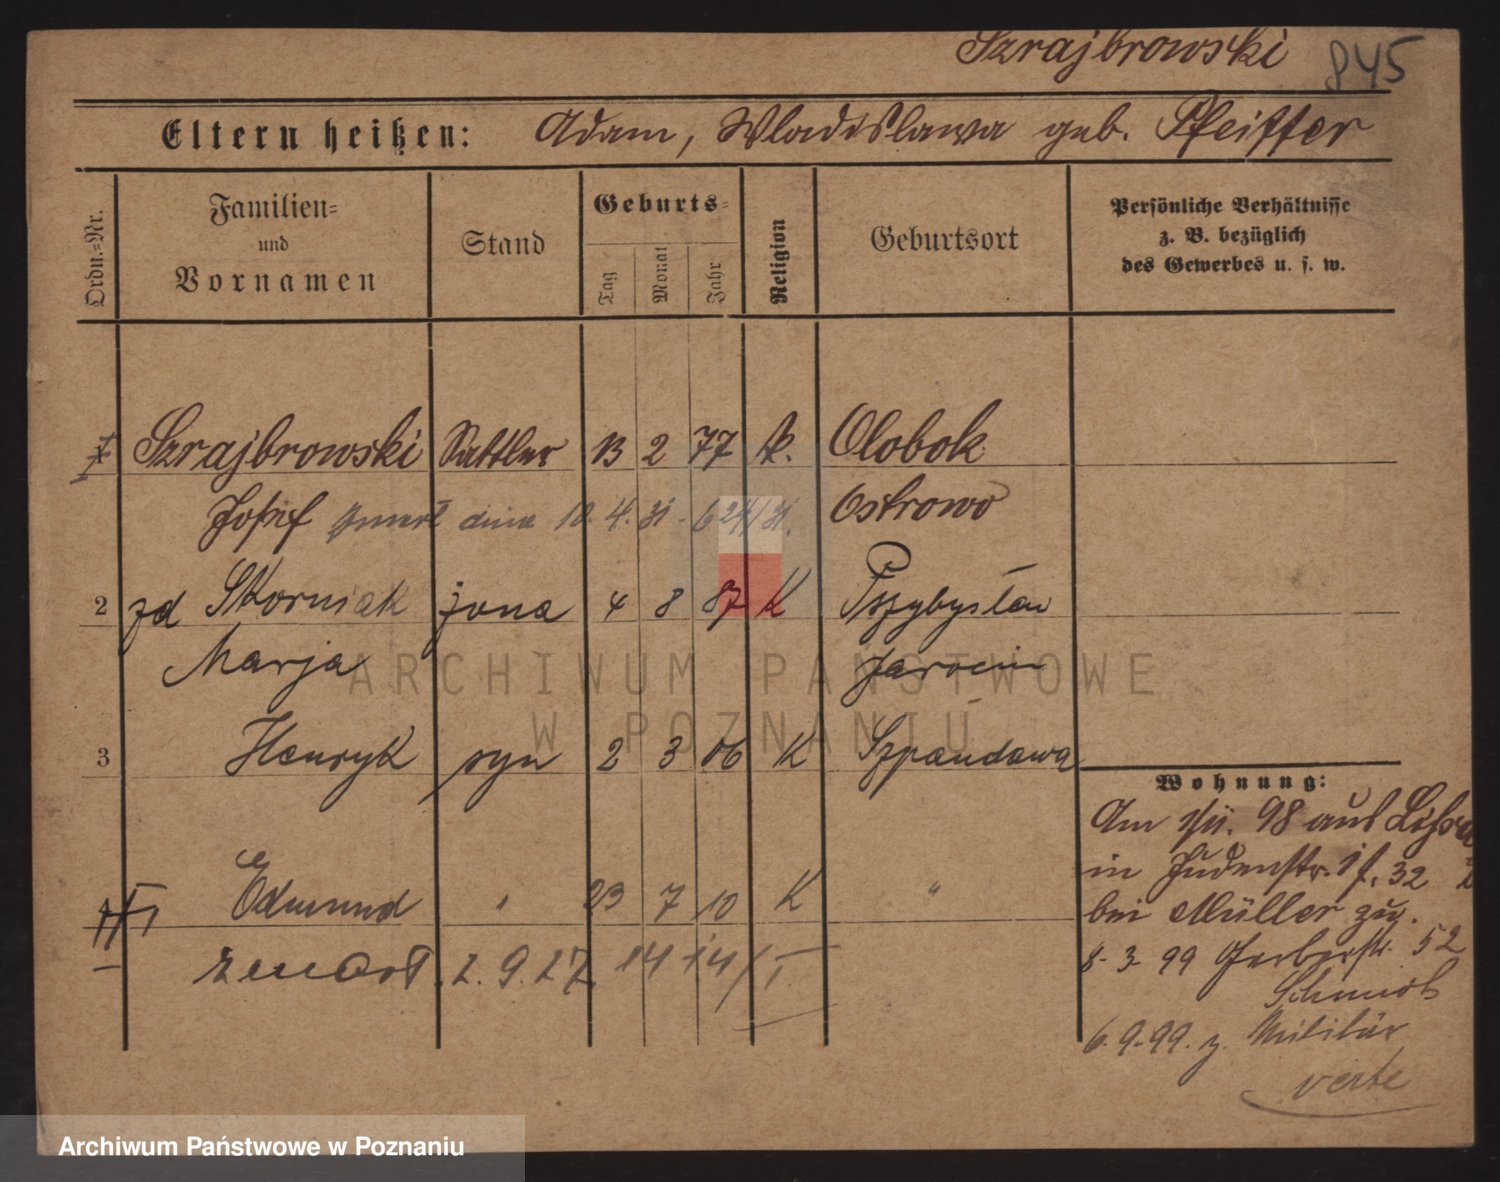 Szrajbrowski 845
Eltern heißen: Adam, Wladislawa geb. Pfeiffer
Ordn.=Nr.
Familien=
und
Vornamen
Stand
Geburts=
Tag
Monat
Jahr
Religion
Geburtsort
Persönliche Verhältnisse
z. B. bezüglich
des Gewerbes u. s. w.
1 Szrajbrowski Sattler 13 2 77 k. Olobok
Josef zmarł dnia 10.4.31. 624/31. Ostrowo
2 zd Skorniak żona 4 8 87 K Przybysław
Marja Jarocin
3 Henryk syn 2 3 06 K Szpandawa
4 Edmund " 23 7 10 K "
zmarł 2.9.27 1414/I
Wohnung:
Am 1/11. 98 aus
in Judenstr. 32
bei Müller zug.
8. 3. 99 Gerberstr. 52
Schmidt
6. 9. 99. z. Militär
verte
ARCHIWUM PAŃSTWOWE
W POZNANIU
Archiwum Państwowe w Poznaniu